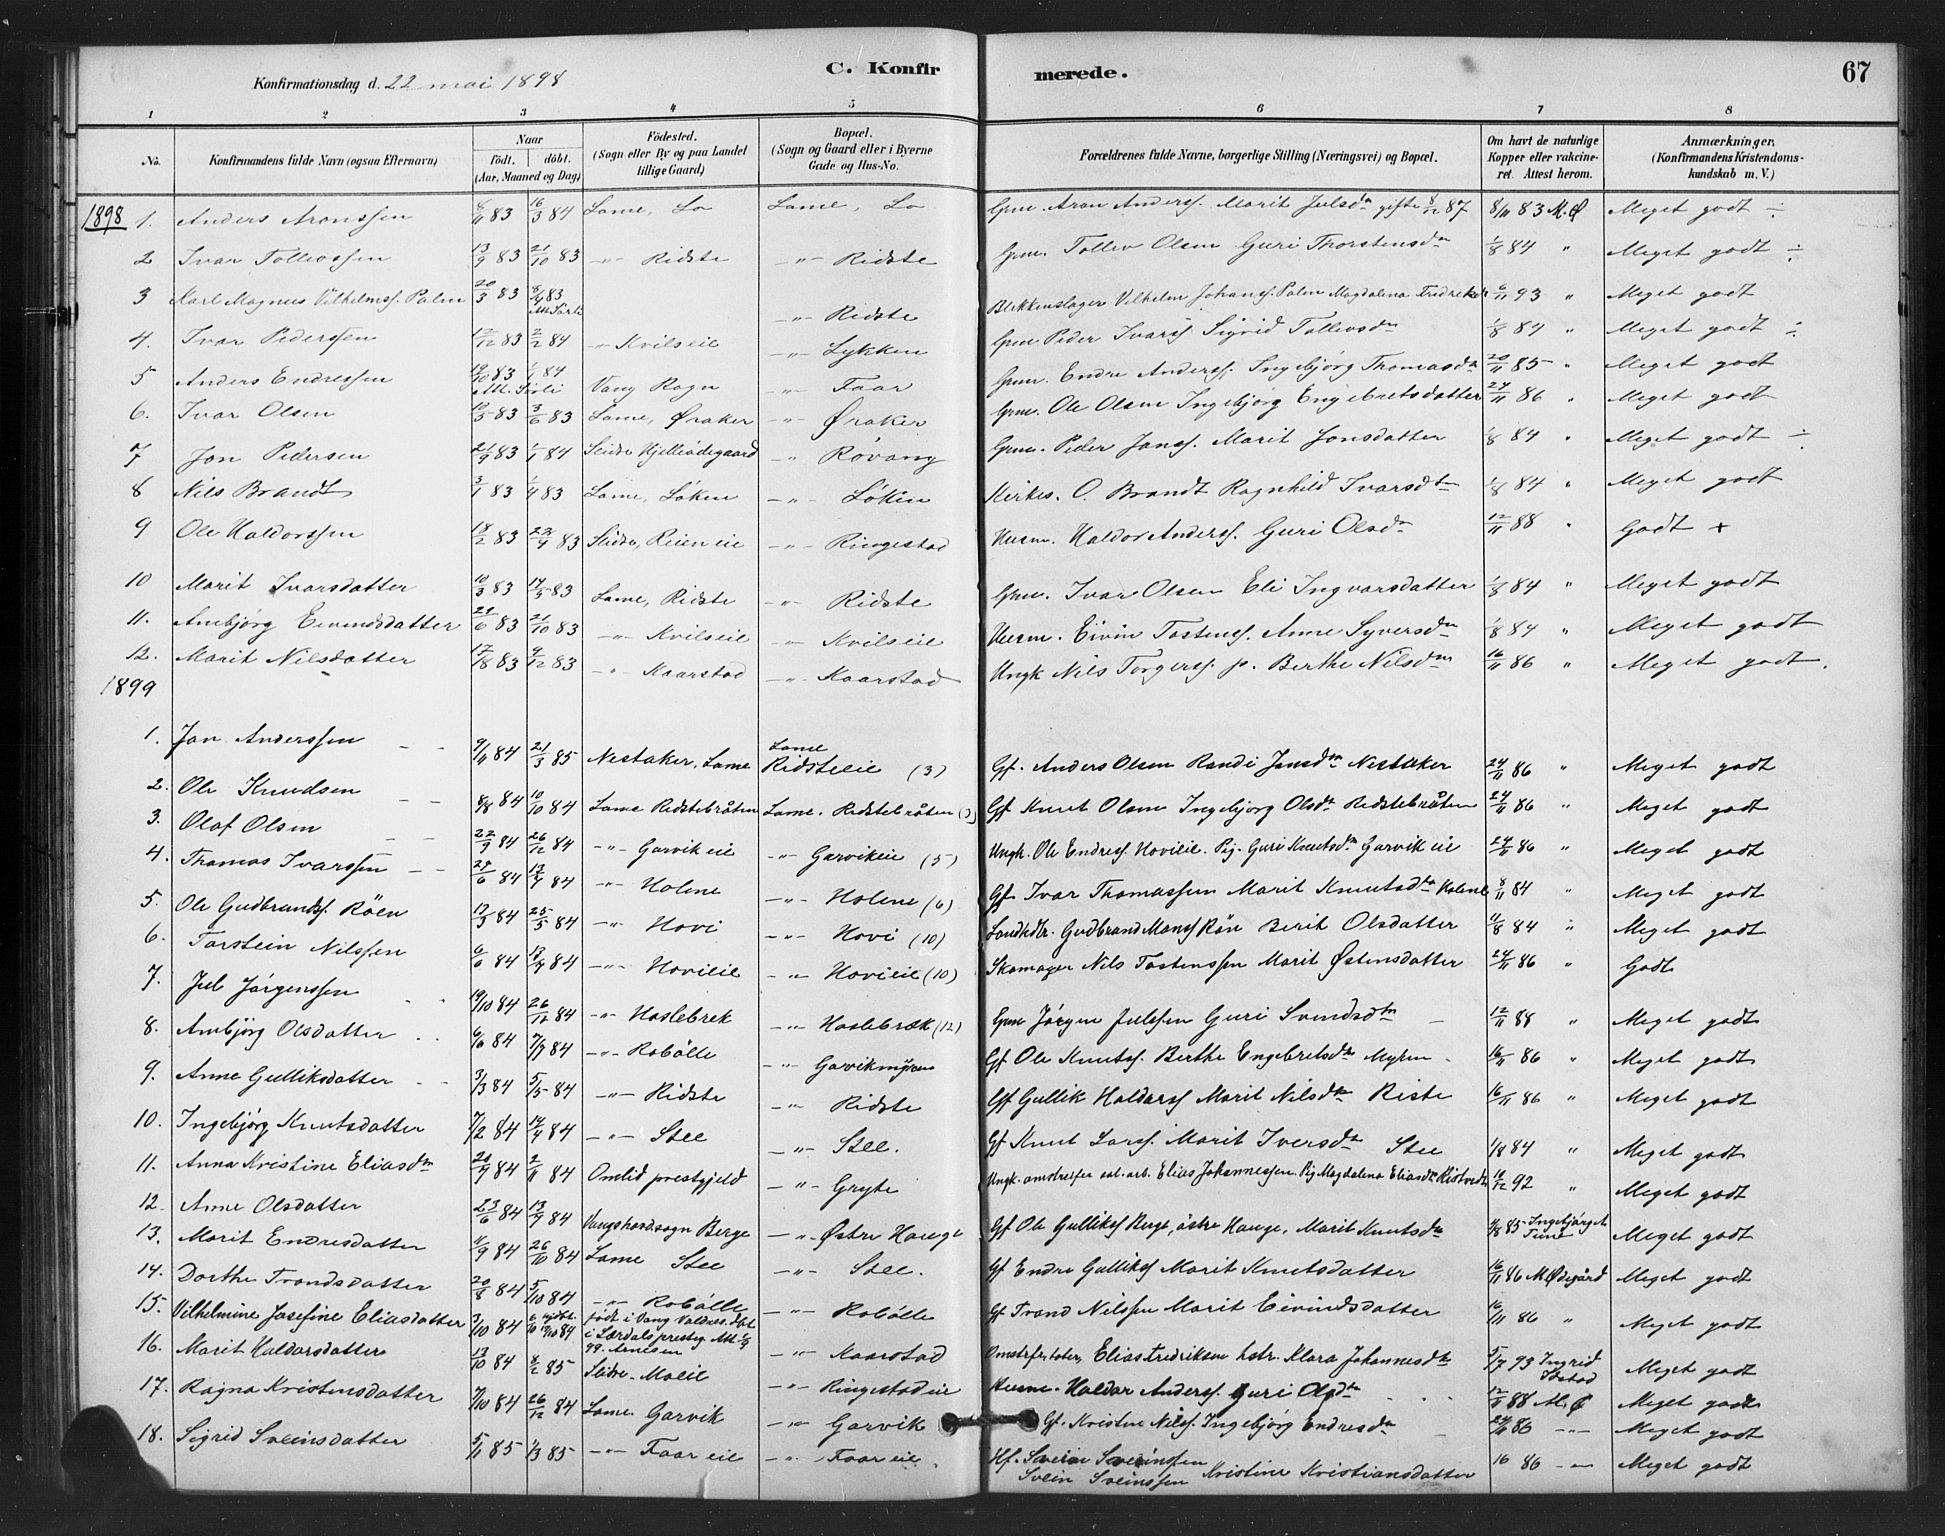 Konfirmationsdag d. 22 mai 1898
C. Konfirmerede. 67
1 2 3 4 5 6 7 8
No. Konfirmandens fulde Navn (ogsaa Efternavn) Naar født. døbt. (Aar, Maaned og Dag) Fødested. (Sogn eller By og paa Landet tillige Gaard) Bopæl. (Sogn og Gaard eller i Byerne Gade og Hus-No. Forældrenes fulde Navne, borgerlige Stilling (Næringsvei) og Bopæl. Om havt de naturlige Kopper eller vakcineret. Attest herom. Anmærkninger, (Konfirmandens Kristendomskundskab m. V.)
1898 1. Anders Aronssen 8/11 83 16/3 84 Lome, Lo Lome, Lo Gm. Aron Anderss. Marit Julsdn gifte 8/12 87 8/11 83 M.Ø Meget godt ÷
2 Ivar Tollevssen 13/9 83 21/10 83 -"- Ridste -"- Ridste Gm. Tollev Olsen Guri Thorstensdn 1/8 84 " Meget godt ÷
3 Karl Magnus Vilhelmss. Palm 20/3 83 8/4 83 -"- Ridste Blikkenslager Vilhelm Johanss. Palm Magdalena 6/11 93 " Meget godt
4. Ivar Pederssen 12/12 83 2/2 84 -"- Kvilseie -"- Lykken Gm Peder Ivarss. Sigrid Tollevsdn 1/8 84 " Meget godt ÷
5 Anders Endressen 19/10 83 1/1 84 Vang Rogn -"- Faar Gm. Endre Anderss. Ingebjørg Thomasdn 20/11 85 " Meget godt
6. Ivar Olsen 12/5 83 3/6 83 Lome, Øraker -"- Øraker Gm. Ole Olsen Ingebjørg Engebretsdatter 24/11 86 " Meget godt
7 Jon Pedersen 21/9 83 1/1 84 Slidre -"- Røvang Gm. Peder Jonss. Marit Jonsdatter 1/8 84 " Meget godt ÷
8 Nils Brandt 3/1 83 1/4 83 Lome, Løken -"- Løken Kirkes. O. Brandt Ragnhild Ivarsdtn 1/8 84 " Meget godt
9 Ole Haldorssen 18/2 83 22/4 83 Slidre, Reieneie -"- Ringestad Husm. Haldor Anderss. Guri Olsdn 12/11 88 " Godt +
10 Marit Ivarsdatter 10/3 83 14/5 83 Lome, Ridste -"- Ridste Gm. Ivar Olsen Eli Ingvarsdatter 1/8 84 " Meget godt
11. Ambjørg Eivindsdatter 21/6 83 21/10 83 -"- Kvilseie -"- Kvilseie Husm. Eivin Tostens. Anne Syversdn 1/8 84 " Meget godt
12. Marit Nilsdatter 17/8 83 9/12 83 -"- Kaarstad -"- Kaarstad Ungk Nils Torgerss. p. Berthe Nilsdn 16/11 86 " Meget godt.
1899
1. Jon Anderssen 9/11 84 21/3 85 Nestaker, Lome Lome Ridsteeie (3) Gf. Anders Olsen Randi Jonsdn Nestaker 24/11 86 " Meget godt
2. Ole Knudsen 8/8 84 10/10 84 Lome Ridstebråten Lome. Ridstebråten Gf Knut Olsen Ingebjørg Olsdn Ridstebråten 24/11 86 " Meget godt
3. Olaf Olsen 22/9 84 26/12 84 -"- Garvikeie -"- Garvikeie (5) Ungk. Ole Endress. Hovieie. Pig. Guri Knutsdn Garvikeie 24/11 86 " Meget godt
4. Thomas Ivarssen 29/6 84 13/9 84 -"- Holene -"- Holene (6) Gf Ivar Thomassen Marit Knutsdtn Holene 8/11 84 " Meget godt
5. Ole Gudbrandss. Røen 12/3 84 25/5 84 -"- Hovi -"- Hovi (10) Landhdlr. Gudbrand Monss Røn Berit Olsdatter 11/8 84 " Meget godt
6. Torstein Nilssen 6/6 84 13/9 84 -"- Hovieie -"- Hovieie (10) Skomager Nils Tostenssen Marit Østensdatter 24/11 86 " Godt
7. Jul Jørgenssen 19/10 84 26/12 84 -"- Haslebrek -"- Haslebræk (12) Gm Jørgen Julssen Guri Svendsdtn 12/11 88 " Meget godt
8. Ambjørg Olsdatter 6/6 84 7/9 84 -"- Robølle -"- Garvikmyren Gf Ole Knutss. Berthe Engebretsdn Myren 16/11 86 " Meget godt
9. Anne Gulliksdatter 3/3 84 5/5 84 -"- Ridste -"- Ridste Gf Gullik Haldorss Marit Nilsdtn Riste 16/11 86 " Meget godt
10. Ingebjørg Knutsdatter 7/2 84 14/4 84 -"- Stee -"- Stee. Gf Knut Larss. Marit Iversdn Stee 1/8 84 " Meget godt
11. Anna Kristine Eliasdtn 20/9 84 2/11 84 Omlid prestgjeld -"- Gryte Ungk. omstreifer Elias Johannessen. Pig Magdalena Eliasdn 10/12 92 " Meget godt
12. Anne Olsdatter 23/6 84 13/9 84 Vangshovdsogn Berge -"- Østre Hauge Gf Ole Gulliks Berge, østre Hauge, Marit Knutsdn 9/8 85 Ingebjørg Meget godt
13. Marit Endresdatter 11/9 84 26/10 84 Lome Stee -"- Stee. Gf Endre Gulliks Marit Knutsdatter 16/11 86 M Ødegård Meget godt
14. Dorthe Trondsdatter 20/8 84 5/10 84 -"- Robølle -"- Robølle Gf Trond Nilssen Marit Eivindsdatter 16/11 86 " Meget godt
15. Vilhelmine Josefine Eliasdatter 3/10 84 født i Vang Valdres. i Lærdals prestg. -"- Kaarstad Elias Fredriksen Klara Johannesdn 5/7 93 Ingrid Meget godt
16. Marit Haldorsdatter 13/10 84 8/2 85 Slidre Moeie -"- Ringestadeie Husm. Haldor Anderss. Guri Olsdtn 12/11 88 M. Ø Meget godt
17. Ragna Kristensdatter 7/10 84 26/12 84 Lome Garvik -"- Garvik Gf. Kristen Nilss. Ingebjørg Endresdn 24/11 86 -"- Meget godt
18. Sigrid Sveinsdatter 5/1 85 1/3 85 -"- Faareie -"- Faareie. Hf. Svein Sveinssen Kristine Kristiansdatter 16 86 -"- Meget godt